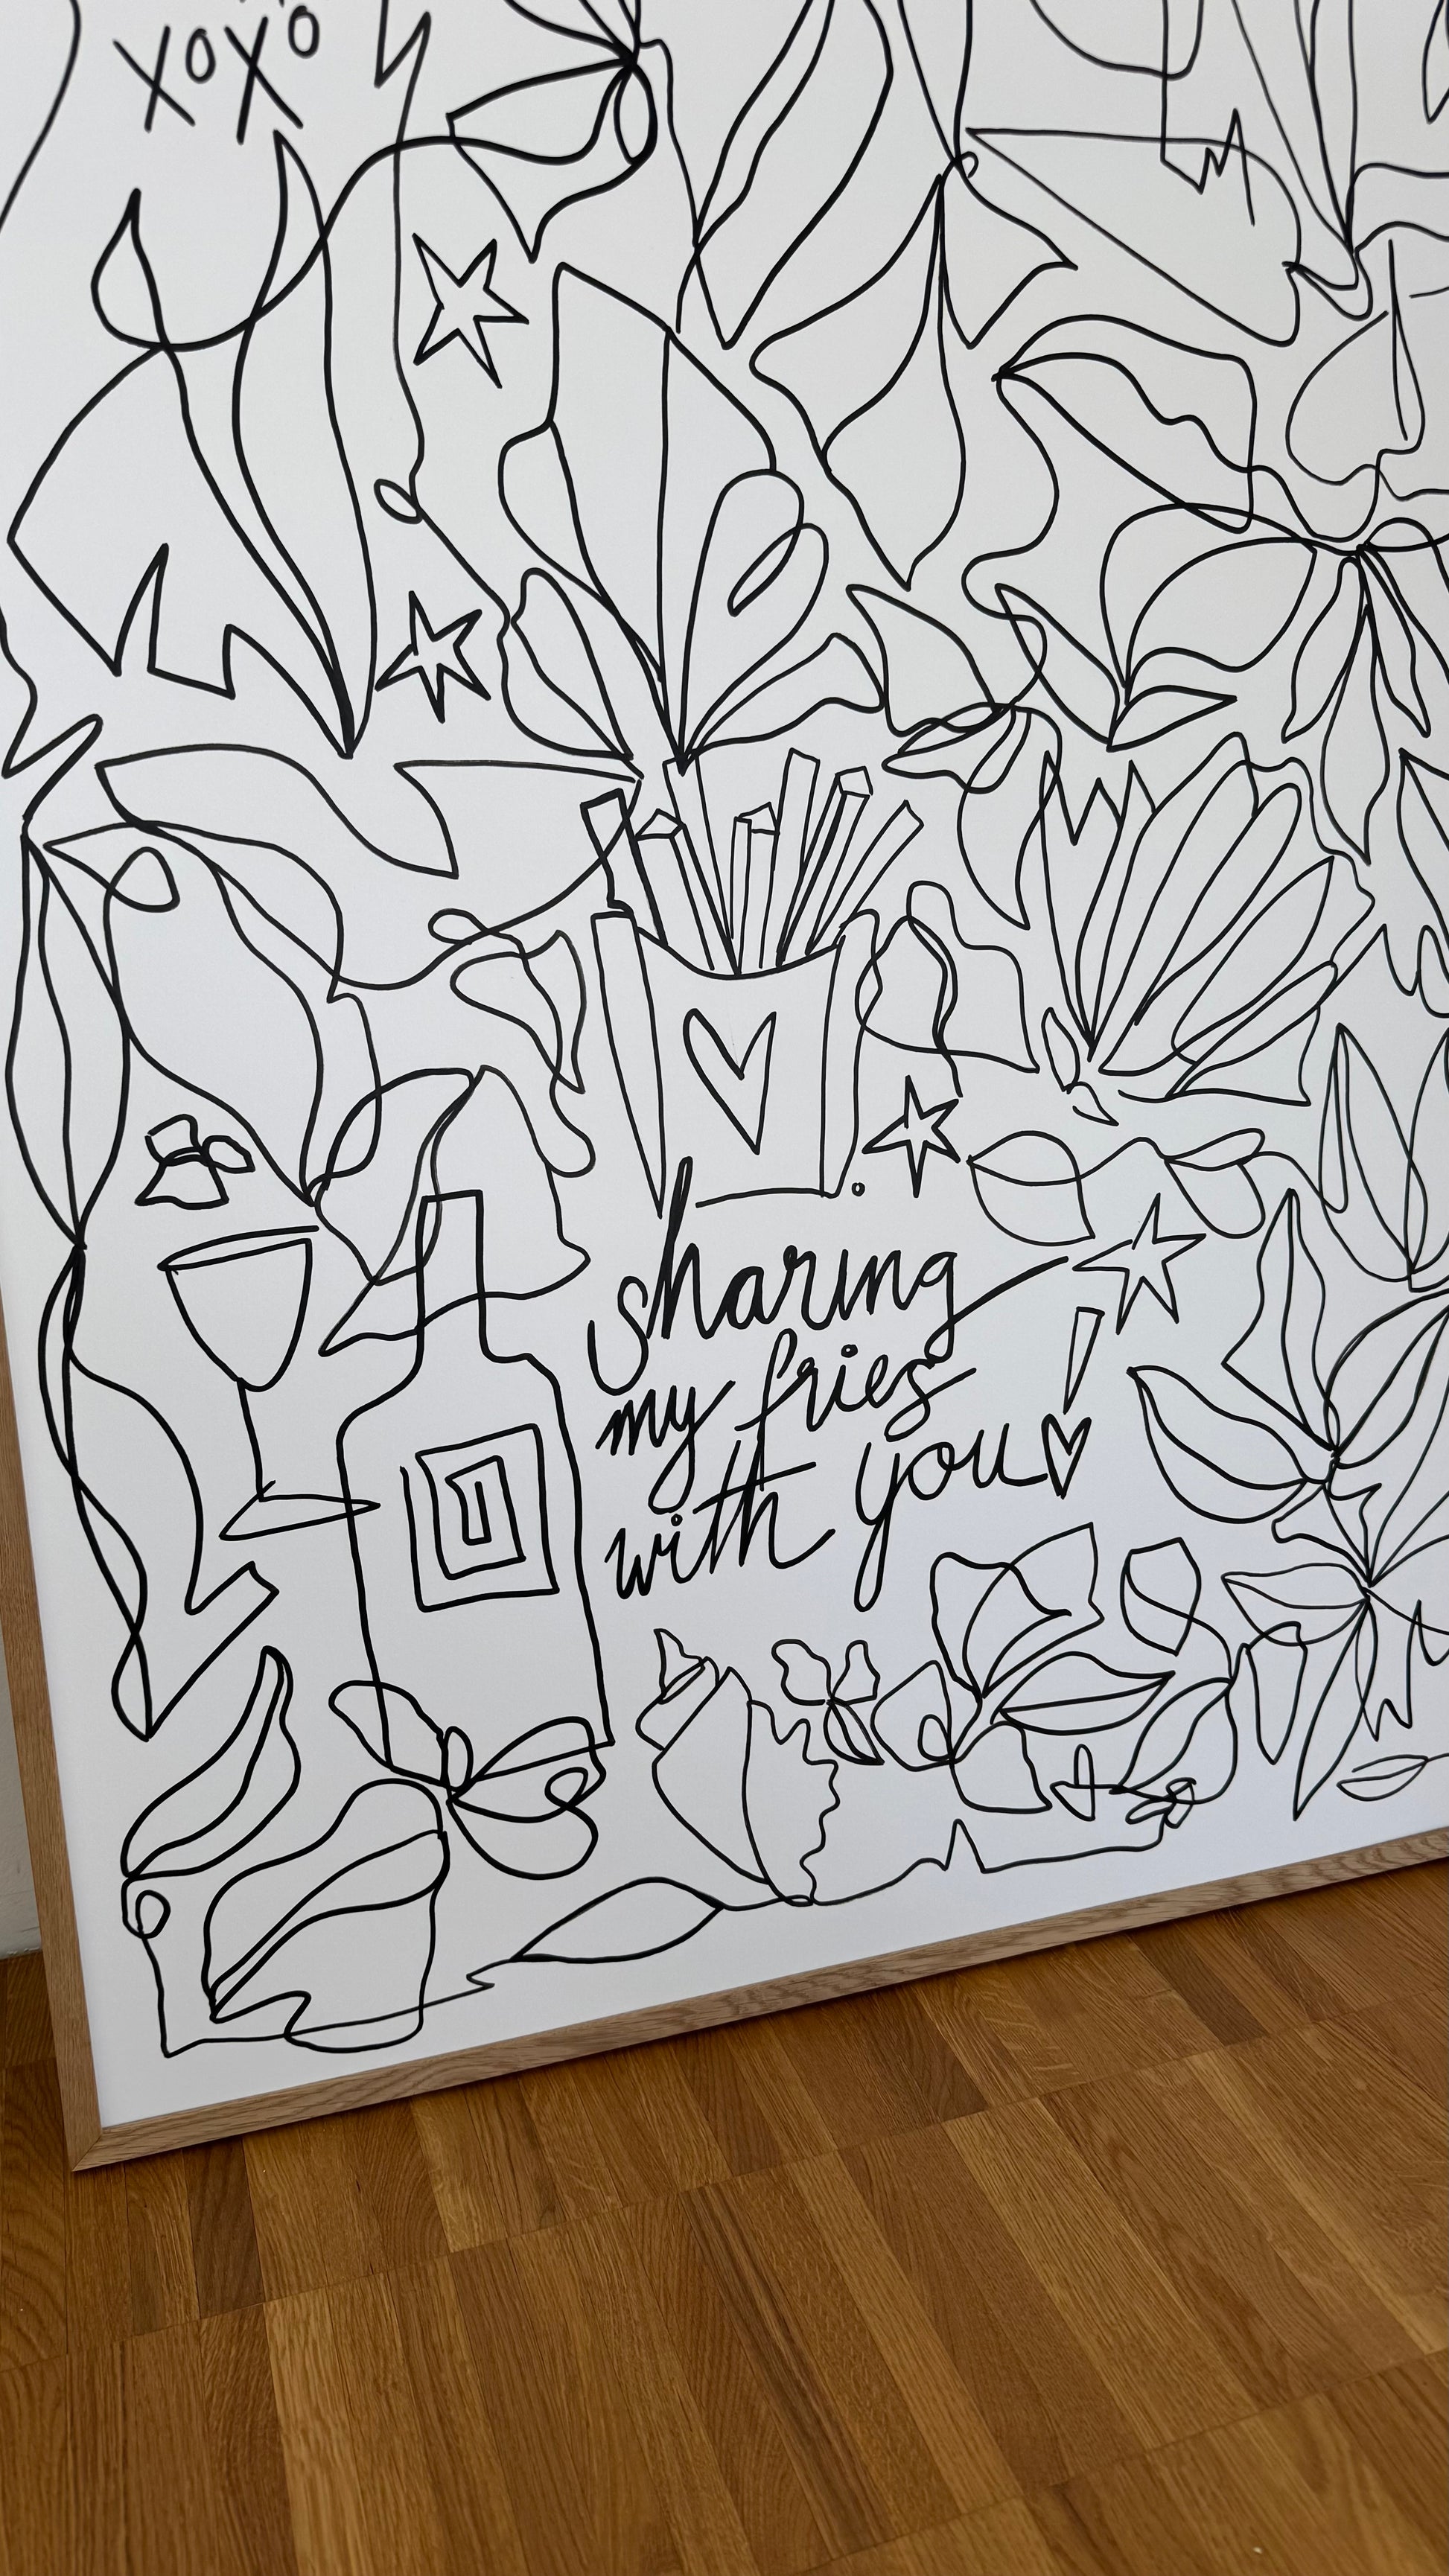 xoxo
sharing
my fries
with you♡